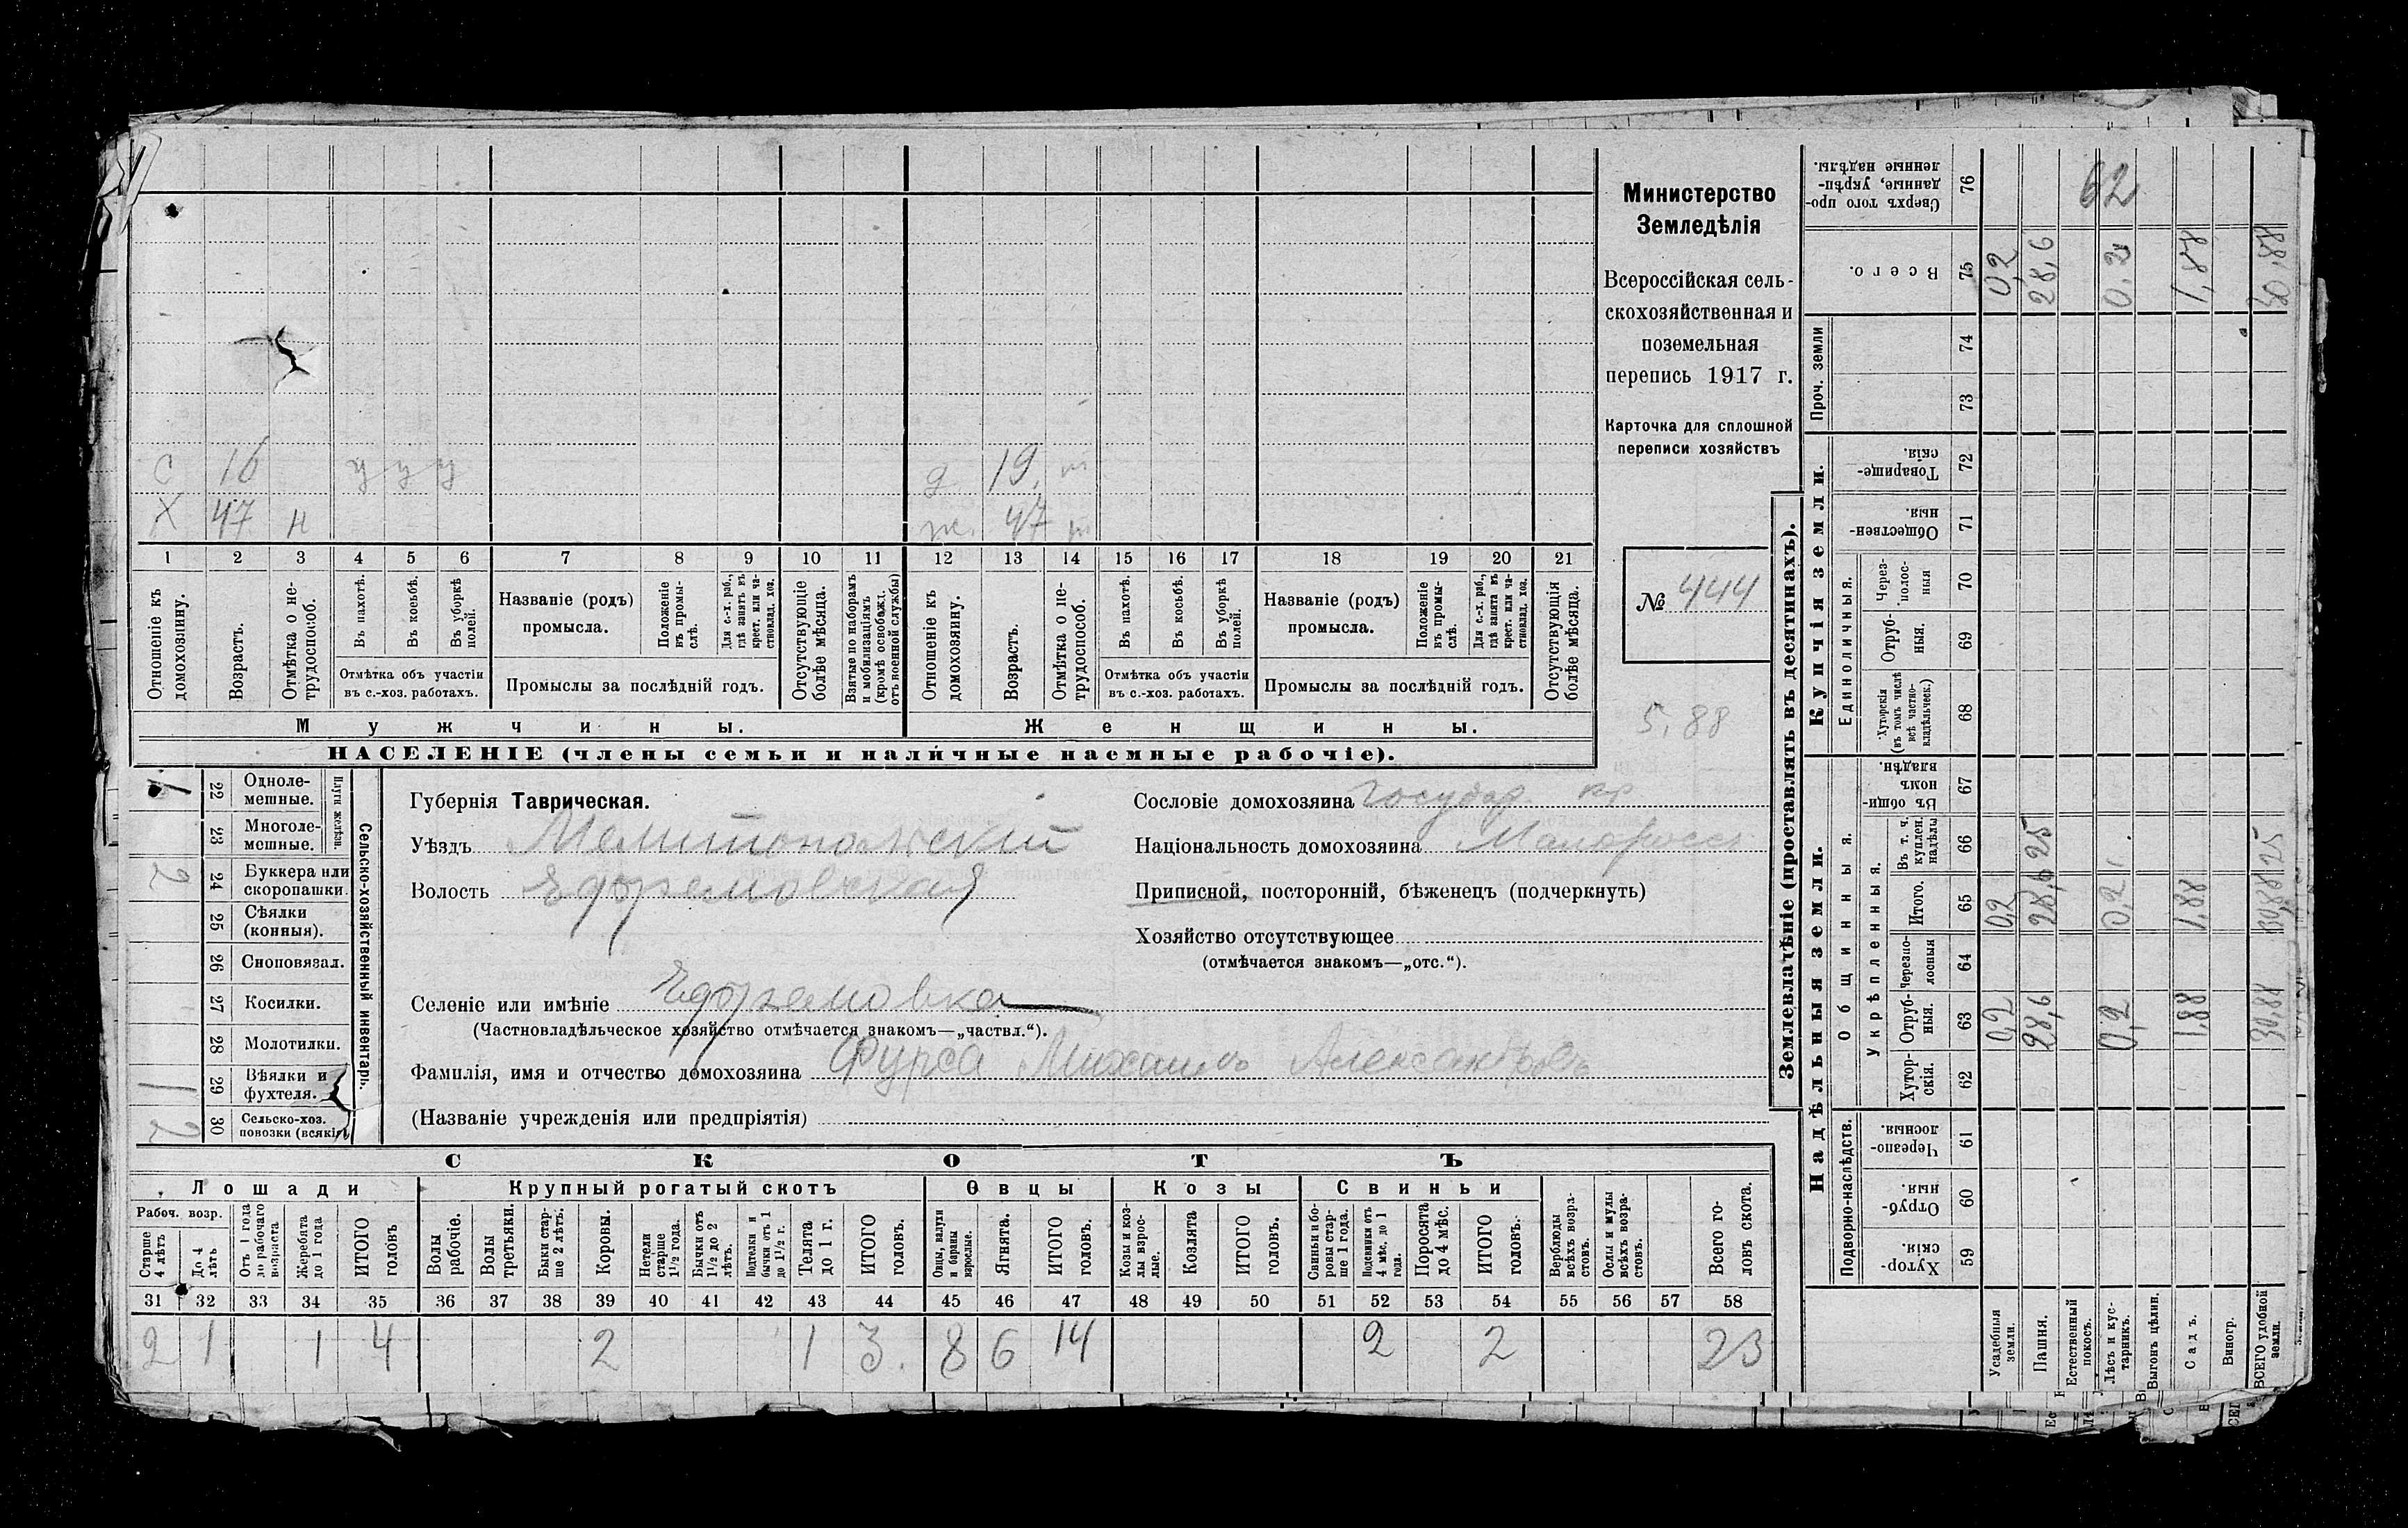 Министерство
Земледѣлія
Всероссійская сель-
скохозяйственная и
поземельная
перепись 1917 г.
Карточка для сплошной
переписи хозяйствъ
№ 444
5,88
с 16 у у у д 19 п
Х 47 н ж. 47 п
1 2 3 4 5 6 7 8 9 10 11 12 13 14 15 16 17 18 19 20 21
Отношеніе къ домохозяину.
Возрастъ.
Отмѣтка о не-трудоспособ.
Въ пахотѣ.
Въ косьбѣ.
Въ уборкѣ полей.
Отмѣтка объ участіи
въ с.-хоз. работахъ.
Названіе (родъ)
промысла.
Положеніе въ промы-слѣ.
Для с.-х. раб., гдѣ занятъ въ крест. или ча-стновлад. хоз.
Промыслы за послѣдній годъ.
Отсутствующіе болѣе мѣсяца.
Взятые по наборамъ и мобилизаціямъ (кромѣ освобожд. отъ военной службы)
Отношеніе къ домохозяину.
Возрастъ.
Отмѣтка о не-трудоспособ.
Въ пахотѣ.
Въ косьбѣ.
Въ уборкѣ полей.
Отмѣтка объ участіи
въ с.-хоз. работахъ.
Названіе (родъ)
промысла.
Положеніе въ промы-слѣ.
Для с.-х. раб., гдѣ занята въ крест. или ча-стновлад. хоз.
Промыслы за послѣдній годъ.
Отсутствующія болѣе мѣсяца.
Мужчины. Женщины.
НАСЕЛЕНІЕ (члены семьи и наличные наемные рабочіе).
Сельско-хозяйственный инвентарь.
Плуги желѣзн.
1 22 Одноле-мешные.
23 Многоле-мешные.
2 24 Буккера или скоропашки.
25 Сѣялки (конныя).
26 Сноповязал.
27 Косилки.
28 Молотилки.
1 29 Вѣялки и фухтеля.
2 30 Сельско-хоз. повозки (всякія)
Губернія Таврическая.
Уѣздъ Мелитопольскій
Волость Ефремовская
Селеніе или имѣніе Ефремовка
(Частновладѣльческое хозяйство отмѣчается знакомъ—„частвл.“).
Фамилія, имя и отчество домохозяина Фурса Михаилъ Александровъ
(Названіе учрежденія или предпріятія)
Сословіе домохозяина Государ. кр
Національность домохозяина Малоросс
Приписной, посторонній, бѣженецъ (подчеркнуть)
Хозяйство отсутствующее
(отмѣчается знакомъ—„отс.“).
СКОТЪ
Лошади Крупный рогатый скотъ Овцы Козы Свиньи
Рабоч. возр.
Старше 4 лѣтъ
До 4 лѣтъ
Отъ 1 года до рабочаго возраста
Жеребята до 1 года
ИТОГО головъ
Волы рабочіе.
Волы третьяки.
Быки стар-ше 2 лѣтъ.
Коровы.
Нетели старше 1½ года.
Бычки отъ 1½ до 2 лѣтъ.
Подтелки и бычки отъ 1 до 1½ г.
Телята до 1 г.
ИТОГО головъ.
Овцы, валухи и бараны взрослые.
Ягнята.
ИТОГО головъ.
Козы и коз-лы взрос-лые.
Козлята
ИТОГО головъ.
Свиньи и бо-ровы стар-ше 1 года.
Подсвинки отъ 4 мѣс. до 1 года.
Поросята до 4 мѣс.
ИТОГО головъ.
Верблюды всѣхъ возра-стовъ.
Ослы и мулы всѣхъ возра-стовъ.
Всего го-ловъ скота.
31 32 33 34 35 36 37 38 39 40 41 42 43 44 45 46 47 48 49 50 51 52 53 54 55 56 57 58
2 1 1 4 2 1 3. 8 6 14 2 2 23
Землевладѣніе (проставлять въ десятинахъ).
Надѣльныя земли. Купчія земли.
Проч. земли
Подворно-наслѣдств.
Общинныя.
Укрѣпленныя.
Единоличныя.
59 Хутор-скія.
60 Отруб-ныя.
61 Черезпо-лосныя.
62 Хутор-скія.
63 Отруб-ныя.
64 Черезпо-лосныя
65 Итого.
66 Въ т. ч. куплен. надѣлы
67 Въ общин-номъ владѣн.
68 Хуторскія (въ томъ числѣ всѣ частно-владѣльческ.)
69 Отруб-ныя.
70 Через-полос-ныя
71 Обществен-ныя.
72 Товарище-скія.
73
74
75 Всего.
76 Сверхъ того про-данные, укрѣп-ленные надѣлы.
Усадебныя земли. 0,2 0,2 0,2
Пашня. 28,6 28,6 25 28,6
Естественный покосъ.
Лѣсъ и кус-тарникъ. 0,2 0,2 0,2
Выгонъ цѣлин.
Садъ. 1,88 1,88 1,88
Виногр.
ВСЕГО удобной земли. 30,88 30,88 25 30,88
62